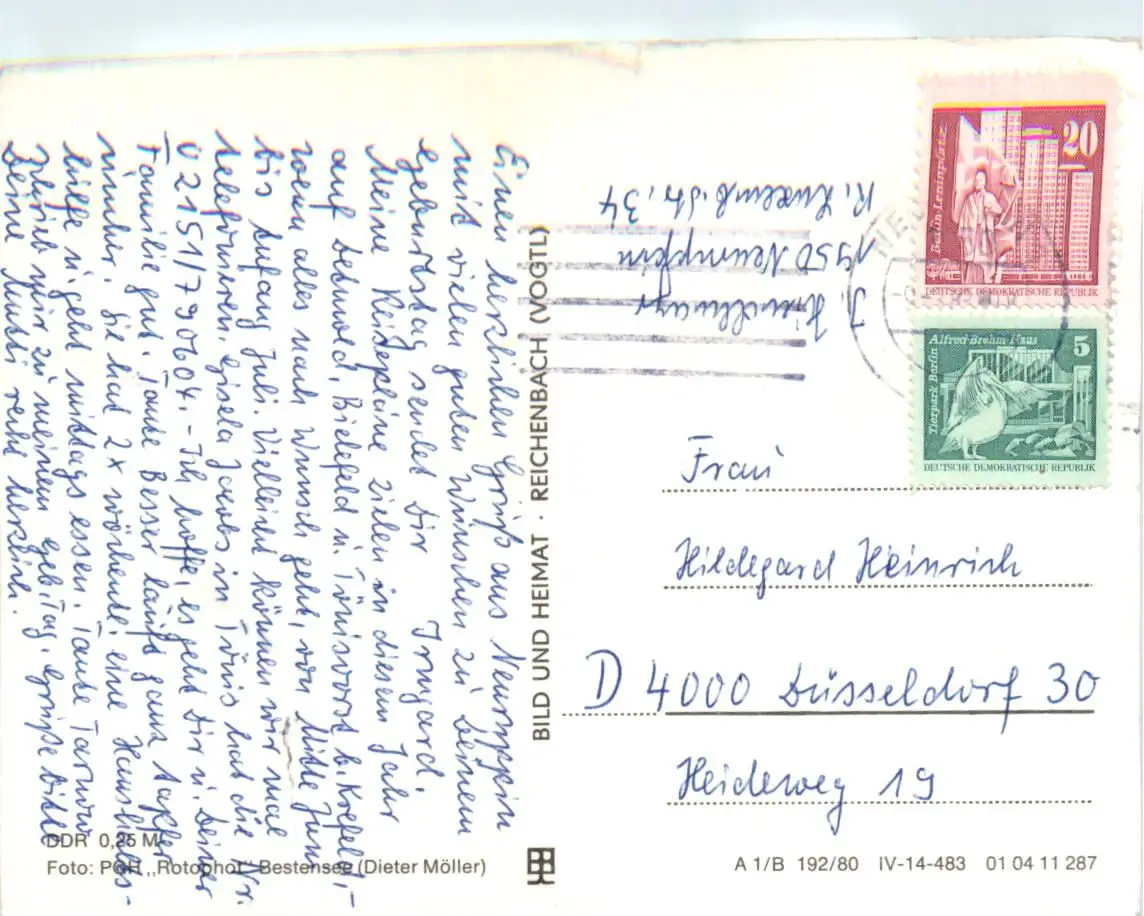 Einen herzlichen Gruß aus Neuruppin
mit vielen guten Wünschen zu Deinem
Geburtstag sendet Dir Irmgard.
Meine Reisepläne zielen in diesem Jahr
auf Detmold, Bielefeld u. Tönisvorst b. Krefeld,-
wenn alles nach Wunsch geht, von Mitte Juni
bis Anfang Juli. Vielleicht können wir mal
telefonieren. Gisela Jacobs in Tönis hat die Nr.
02151/790604.- Ich hoffe, es geht Dir u. Deiner
Familie gut. Tante Besser läuft ganz tapfer
umher. Sie hat 2x wöchentl. eine Haushalts-
hilfe u. geht mittags essen. Tante
schrieb mir zu meinem Geb.tag. Grüße bitte
Deine Mutti recht herzlich.
J.
1950 Neuruppin
R. Luxemb. Str. 34
BILD UND HEIMAT · REICHENBACH (VOGTL)
20
Berlin-Leninplatz
DEUTSCHE DEMOKRATISCHE REPUBLIK
5
Alfred-Brehm-Haus
Tierpark Berlin
DEUTSCHE DEMOKRATISCHE REPUBLIK
Frau
Hildegard Heinrich
D 4000 Düsseldorf 30
Heideweg 19
DDR 0,25 M
Foto: PGH „Rotophot" Bestensee (Dieter Möller)
A 1/B 192/80 IV-14-483 01 04 11 287